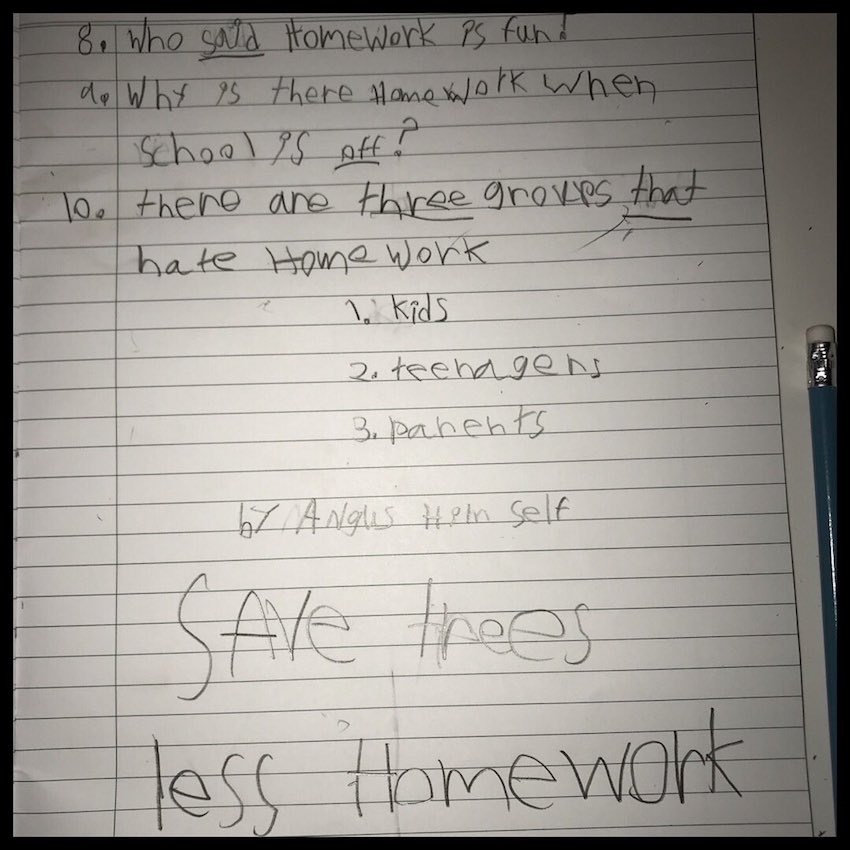 8. Who said HomeWork is fun!
9. Why is there HomeWork when
school is off?
10. there are three groups that
hate HomeWork
1. kids
2. teenagers
3. parents
by Angus Him self
SAVe trees
less HomeWork